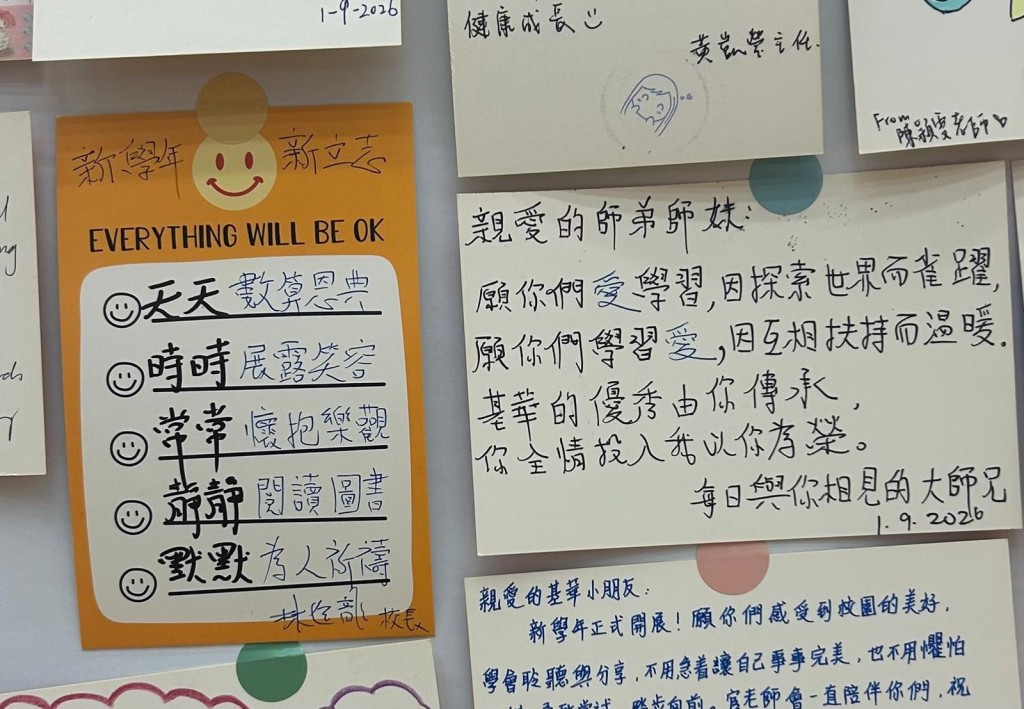 1-9-2026
健康成長
黃凱縈主任.
From
陳穎雯老師
新學年 新立志
EVERYTHING WILL BE OK
天天 數算恩典
時時 展露笑容
常常 懷抱樂觀
靜靜 閱讀圖書
默默 為人祈禱
校長
親愛的師弟師妹:
願你們愛學習,因探索世界而雀躍,
願你們學習愛,因互相扶持而温暖.
基華的優秀由你傳承,
你全情投入我以你為榮。
每日與你相見的大師兄
1.9.2026
親愛的基華小朋友:
新學年正式開展!願你們感受到校園的美好,
學會聆聽與分享,不用急着讓自己事事完美,也不用懼怕
踏步向前。官老師會一直陪伴你們,祝